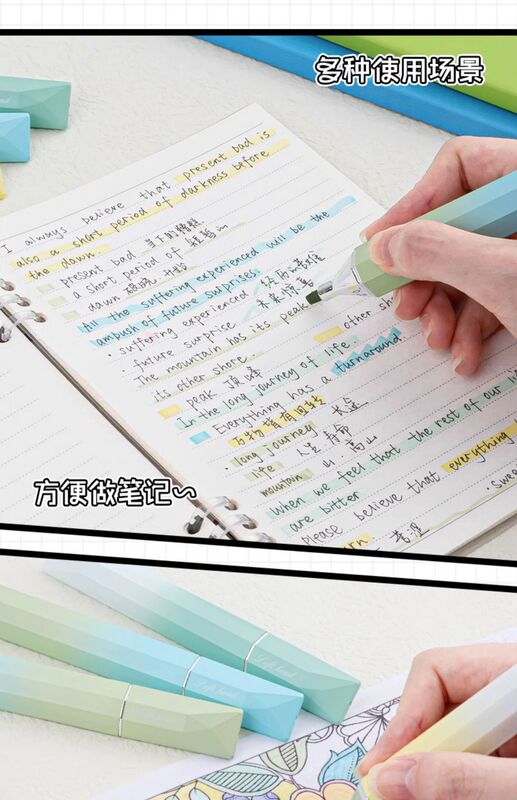 多种使用场景
I always believe that present bad is
also a short period of darkness before
the dawn.
present bad 当下的糟糕
a short period of 短暂的
dawn 破晓
All the suffering experienced will be the
ambush of future surprises.
· suffering experienced 经历苦难
· future surprise 未来惊喜
· The mountain has its peak
other sho
it's other shore
· peak 顶峰
In the long journey of life
Everything has a turnaround.
万物皆有回转
long journey 长途
life 人生
mountain 山. 高山
When we feel that the rest of our li
are bitter
Please believe that everything
· swee
rn 苦涩
方便做笔记~
Left hand
Left hand